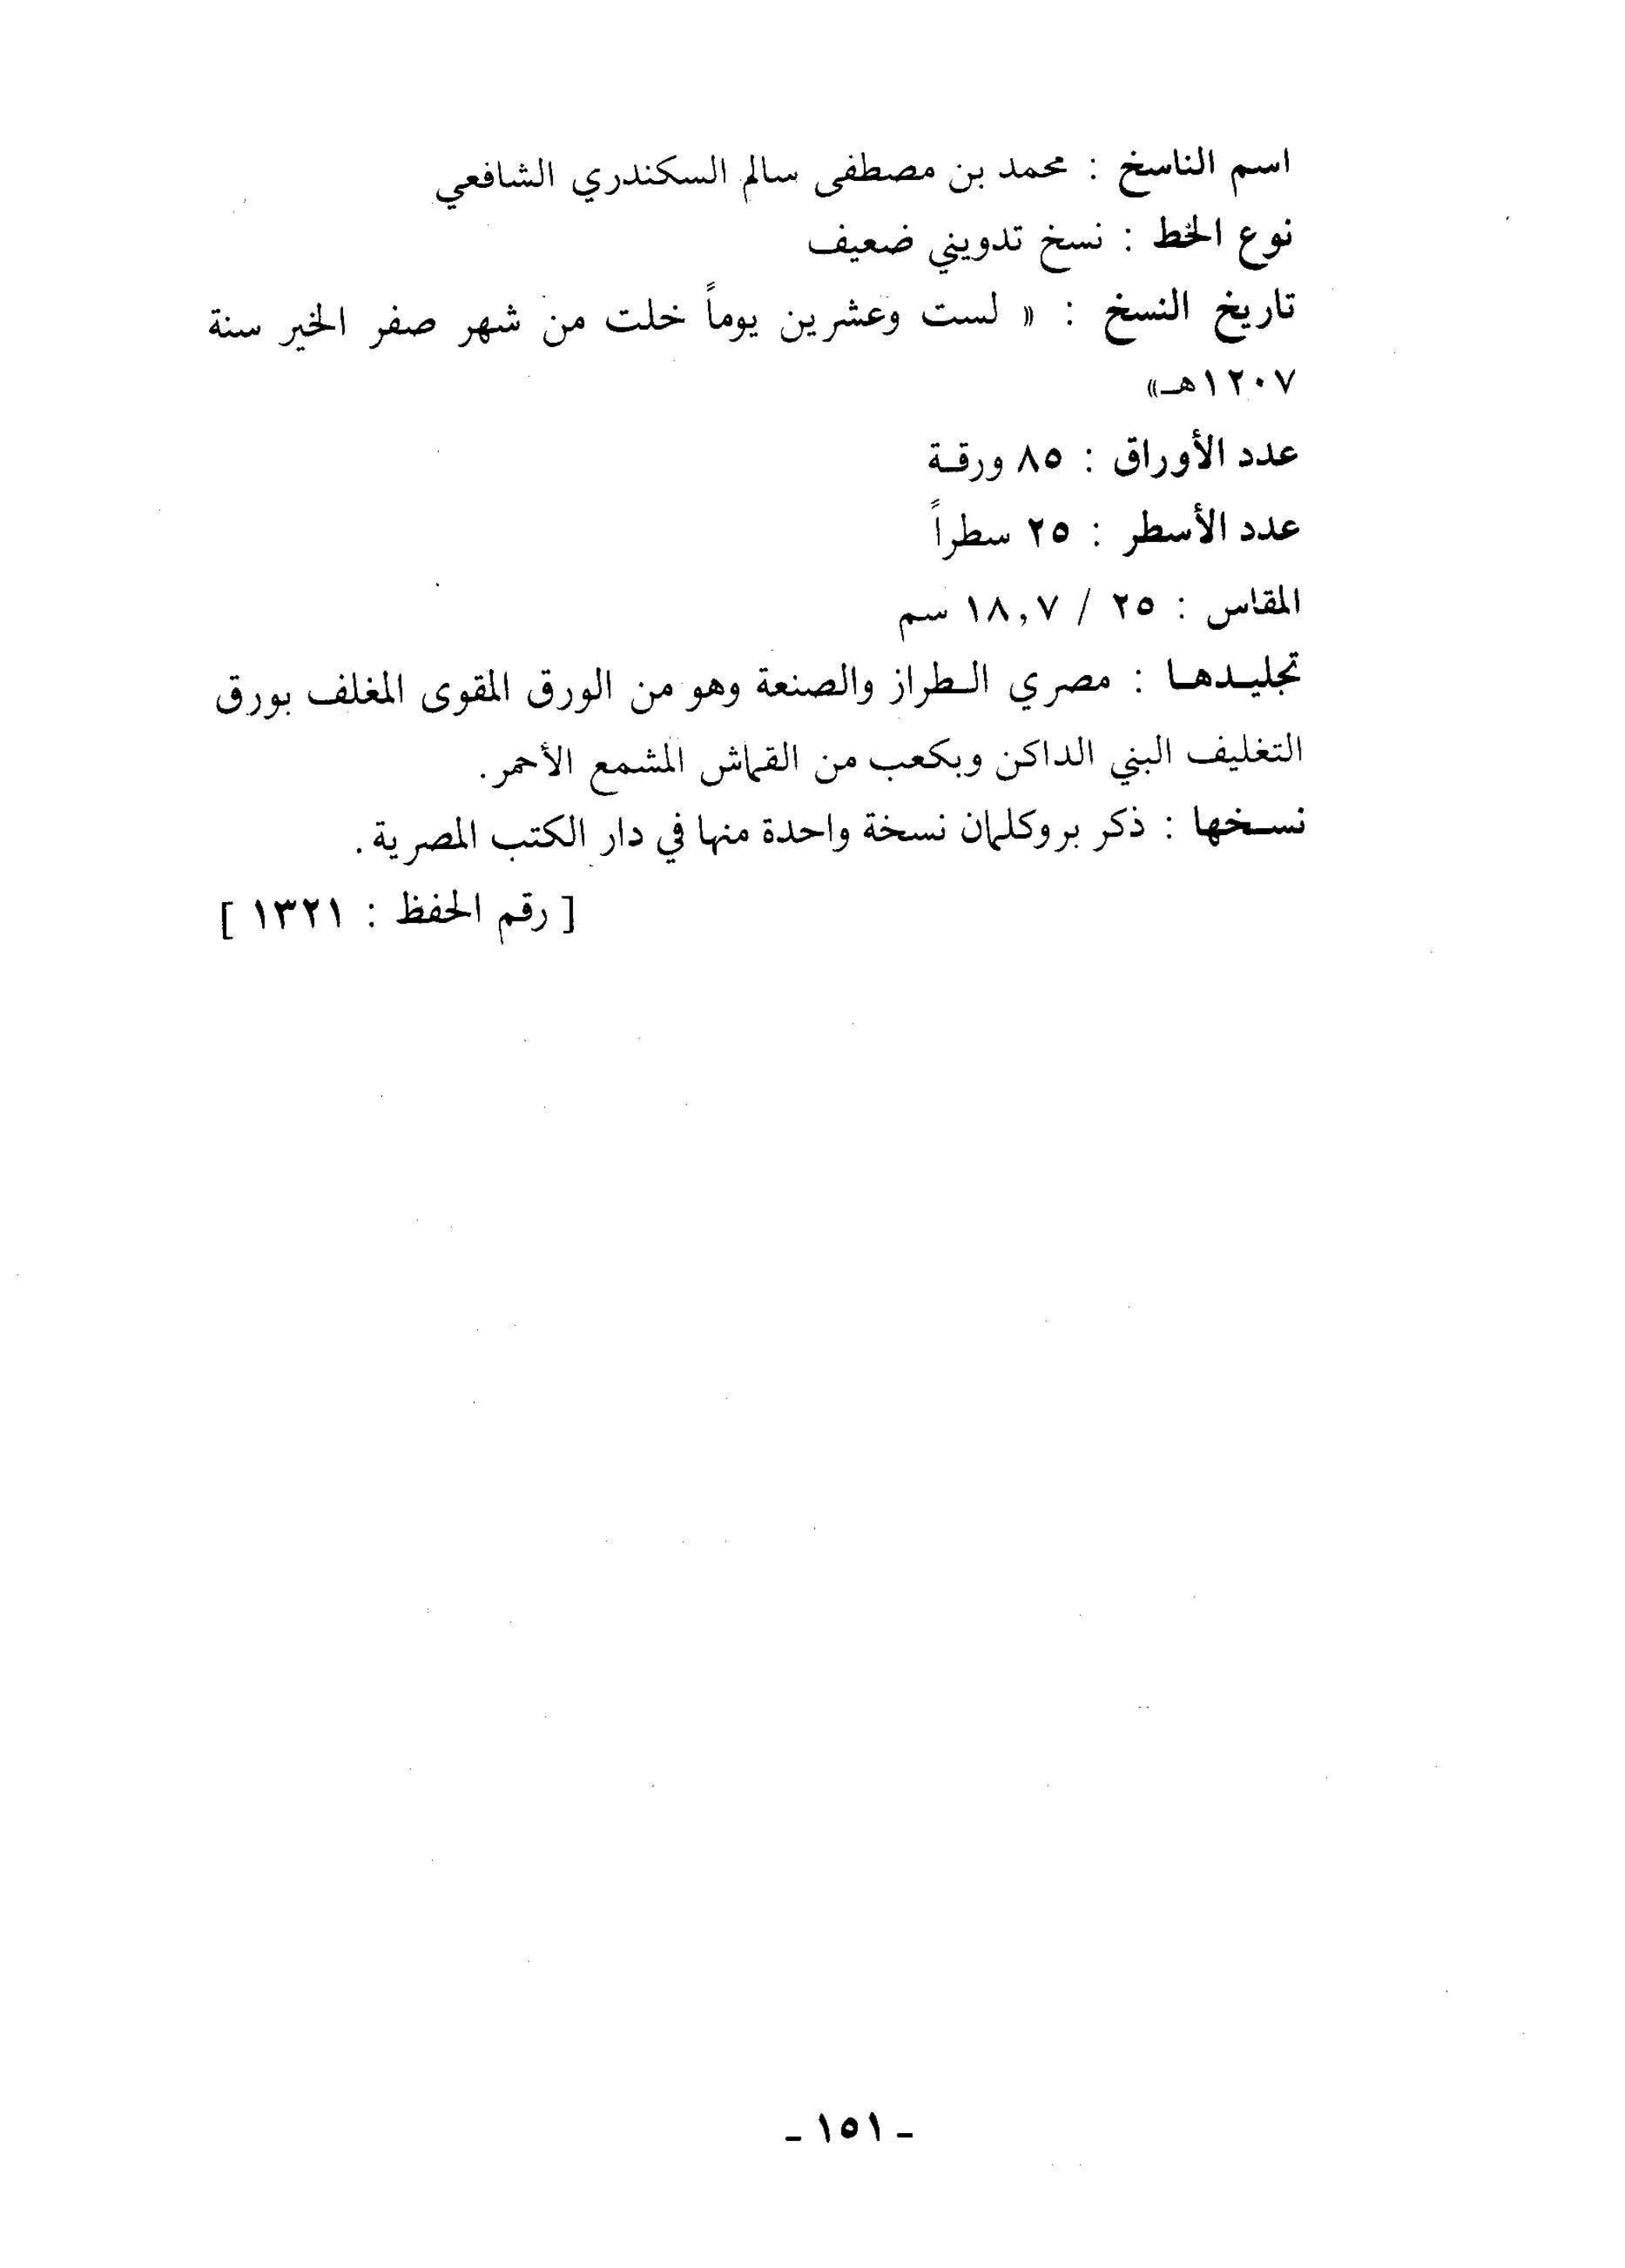 اسم الناسخ : محمد بن مصطفى سالم السكندري الشافعي
نوع الخط : نسخ تدويني ضعيف
تاريخ النسخ : « لست وعشرين يوماً خلت من شهر صفر الخير سنة
١٢٠٧هـ»
عدد الأوراق : ٨٥ ورقـة
عدد الأسطر : ٢٥ سطراً
المقاس : ٢٥ / ١٨,٧ سم
تجليـدهـا : مصري الـطراز والصنعة وهو من الورق المقوى المغلف بورق
التغليف البني الداكن وبكعب من القماش المشمع الأحمر.
نسـخها : ذكر بروكلمان نسخة واحدة منها في دار الكتب المصرية .
[ رقم الحفظ : ١٣٢١ ]
ـ ١٥١ ـ